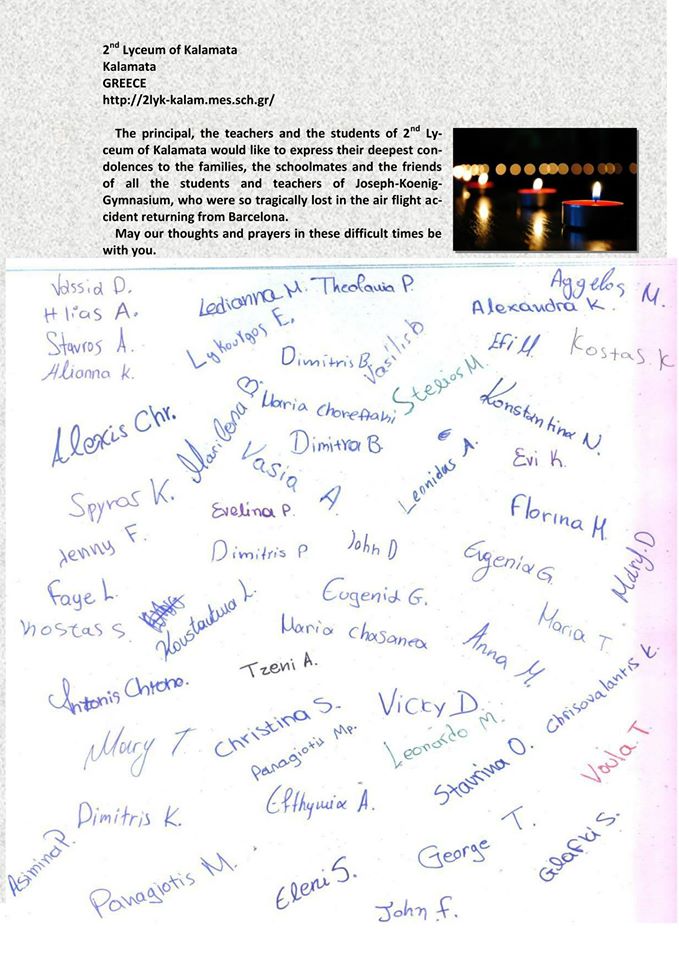 2nd Lyceum of Kalamata
Kalamata
GREECE
http://2lyk-kalam.mes.sch.gr/
The principal, the teachers and the students of 2nd Ly-
ceum of Kalamata would like to express their deepest con-
dolences to the families, the schoolmates and the friends
of all the students and teachers of Joseph-Koenig-
Gymnasium, who were so tragically lost in the air flight ac-
cident returning from Barcelona.
May our thoughts and prayers in these difficult times be
with you.
Vassia D.
Ledianna M.
Theolavia P.
Aggelos M.
Hlias A.
Alexandra K.
Lykourgos E.
Stavros A.
Dimitris B.
Vasilis B
Efi M.
Kostas K
Alianna K.
Stelios M.
Marilena B.
Maria Choreftaki
Konstantina N.
Alexis Chr.
Dimitra B
Vasia A
Leonidas A.
Evi K.
Spyros K.
Evelina P.
Florina M.
Jenny F.
Dimitris P
John D
Eugenia G.
Mary.D
Faye L.
Eugenia G.
Kostas S.
Konstantina L.
Maria Chasanea
Maria T.
Anna M.
Tzeni A.
Antonis Chrono.
Chrisovalantis K.
Vicky D.
Christina S.
Mary T.
Panagiotis Mp.
Leonardo M.
Stavrina O.
Voula T.
Dimitris K.
Efthymia A.
Asimina P.
George T.
Glafki S.
Panagiotis M.
Eleni S.
John F.